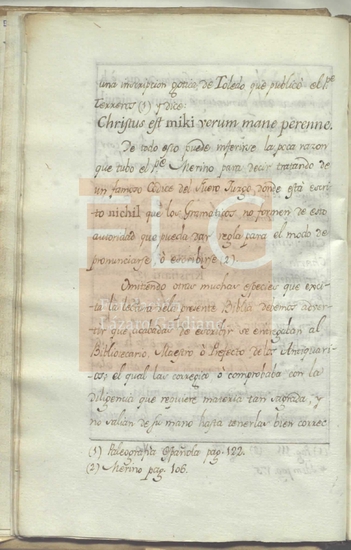 una inscripcion gotica de Toledo que publicó el P.e
Terreros (1) y dice:
Christus est miki verum mane perenne.
De todo esto puede inferirse la poca razon
que tubo el P.e Merino para decir tratando de
un famoso Codice del Fuero Juzgo donde está escri-
to nichil que los Gramáticos no formen de esto
autoridad que pueda dar regla para el modo de
pronunciarse, ò escribirse (2).
Omitiendo otras muchas especies que exci-
ta la lectura de la presente Biblia devemos adver-
tir que acabadas de escribir se entregaban al
Bibliotecario, Maestro ò Prefecto de los Antiquari-
os, el qual las corregia ò comprobaba con la
diligencia que requiere materia tan sagrada, y
no salian de su mano hasta tenerlas bien correc
(1) Paleografia Española pag. 122.
(2) Merino pag. 106.
FLG
Lázaro Galdiano